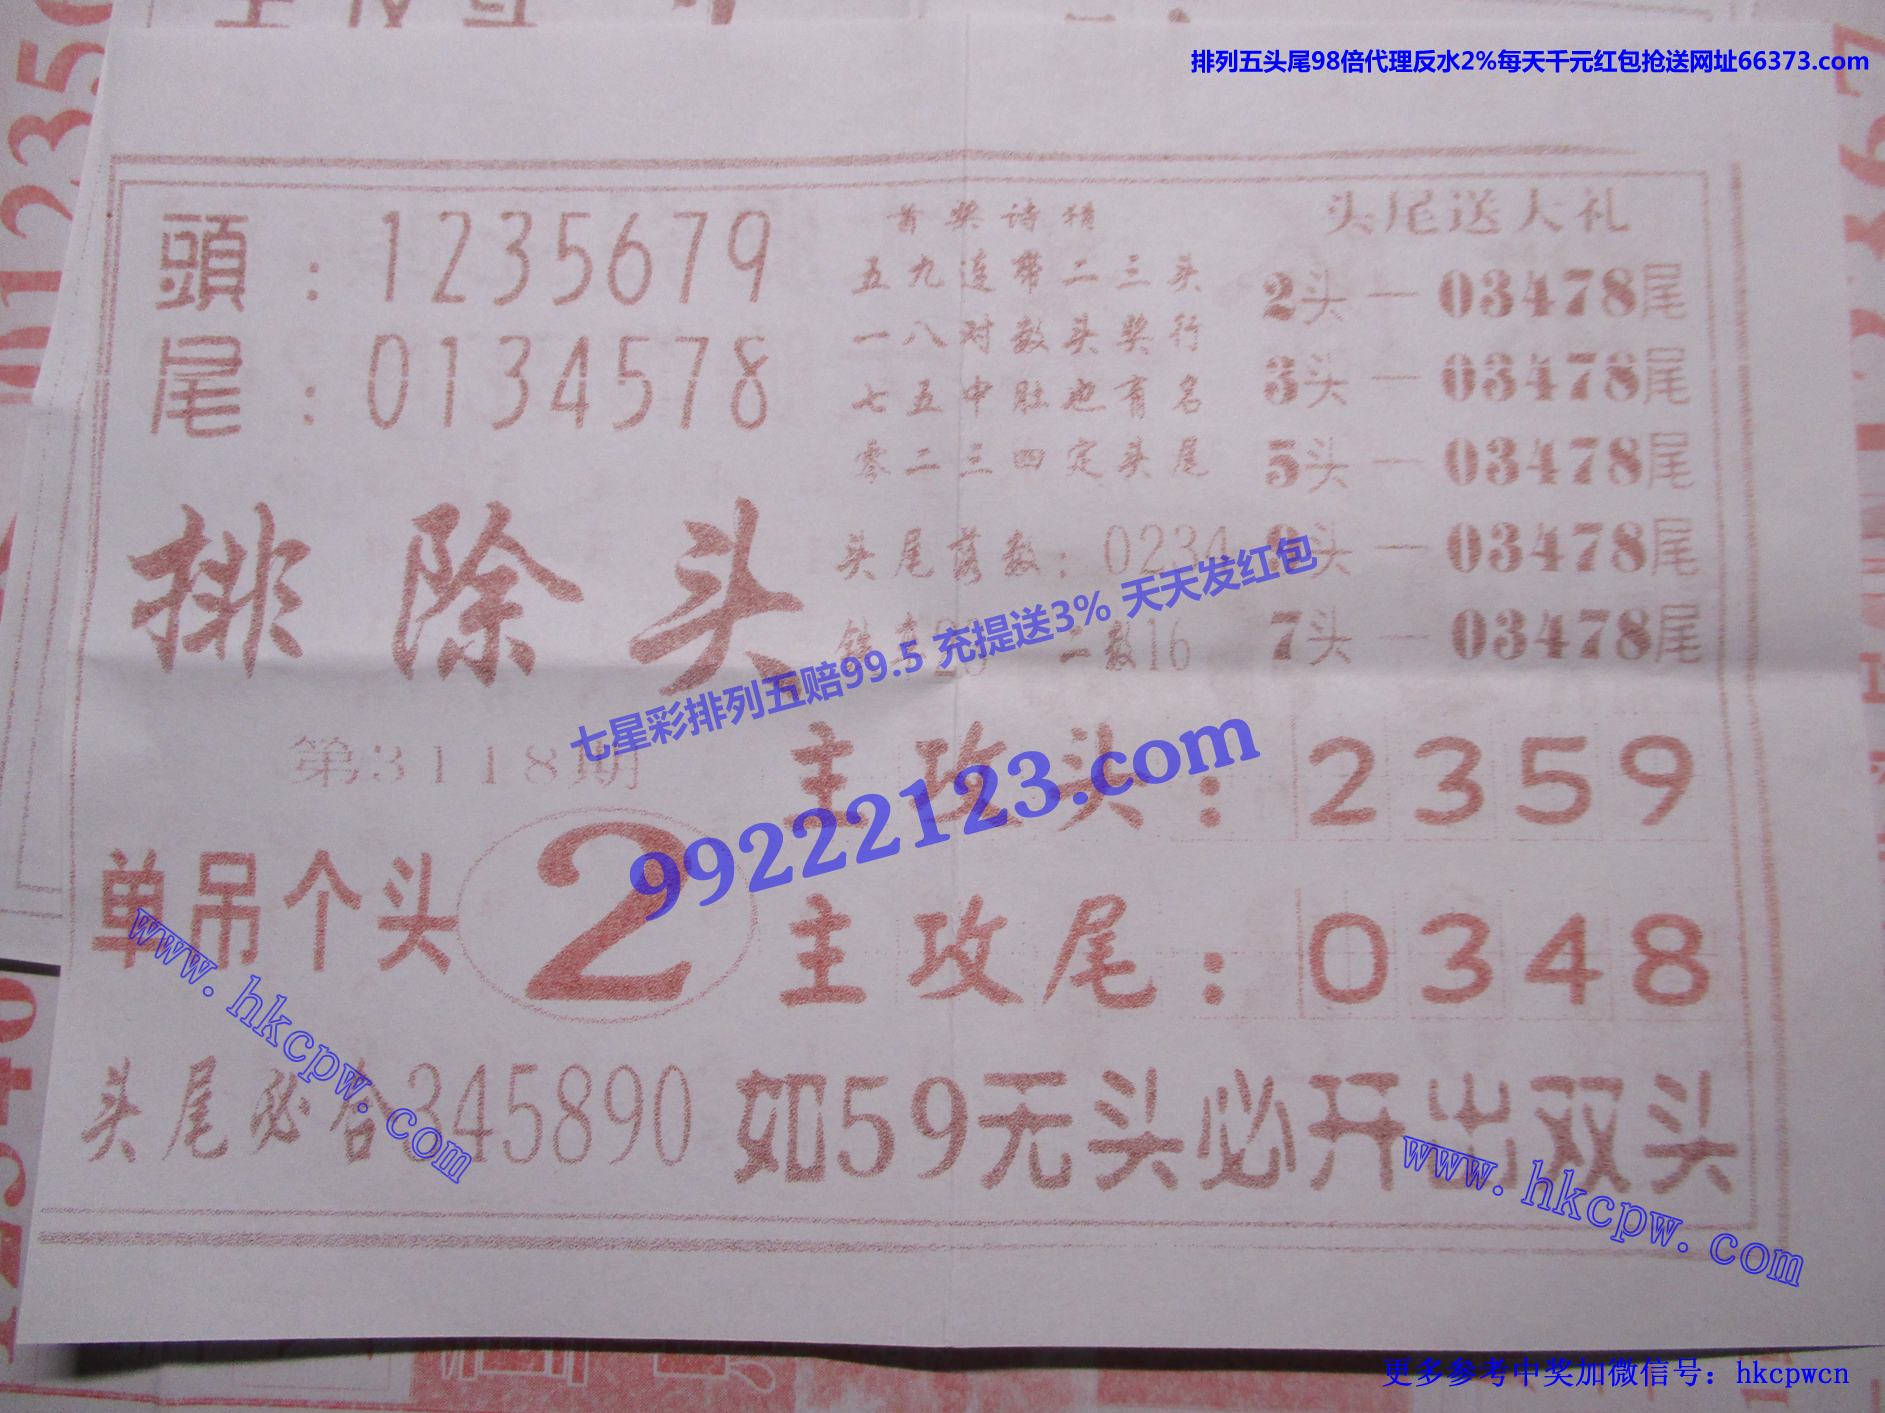 排列五头尾98倍代理反水2%每天千元红包抢送网址66373.com
頭：1235679
尾：0134578
排除头
第3118期
首奖诗猜
五九连带二三头
一八对数头奖行
七五中肚也有名
零二三四定头尾
头尾落数：0234
二数16
头尾送大礼
2头一03478尾
3头一03478尾
5头一03478尾
头一03478尾
7头一03478尾
七星彩排列五赔99.5 充提送3% 天天发红包
99222123.com
单吊个头 2
主攻头：2359
主攻尾：0348
头尾必合345890
如59无头必开出双头
www.hkcpw.com
www.hkcpw.com
更多参考中奖加微信号：hkcpwcn